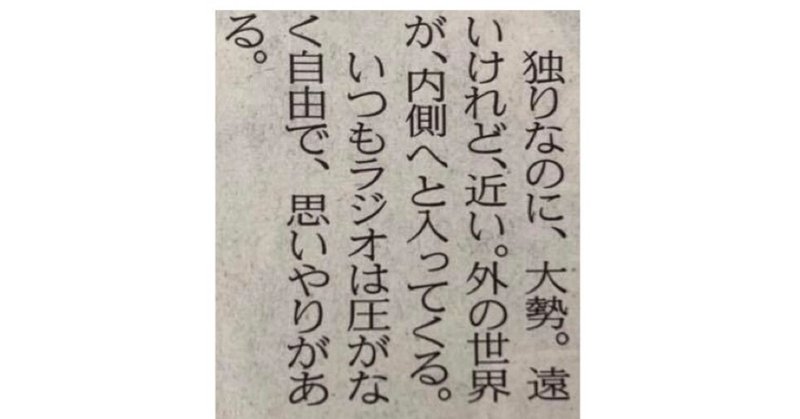 独りなのに、大勢。遠
いけれど、近い。外の世界
が、内側へと入ってくる。
いつもラジオは圧がな
く自由で、思いやりがあ
る。